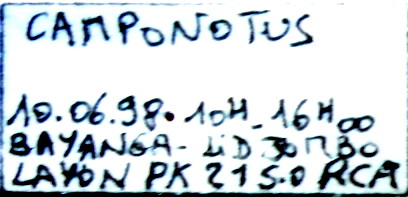 CAMPONOTUS
10.06.98. 10H_16H00
BAYANGA- 4D
LAYON PK 215.0 RCA